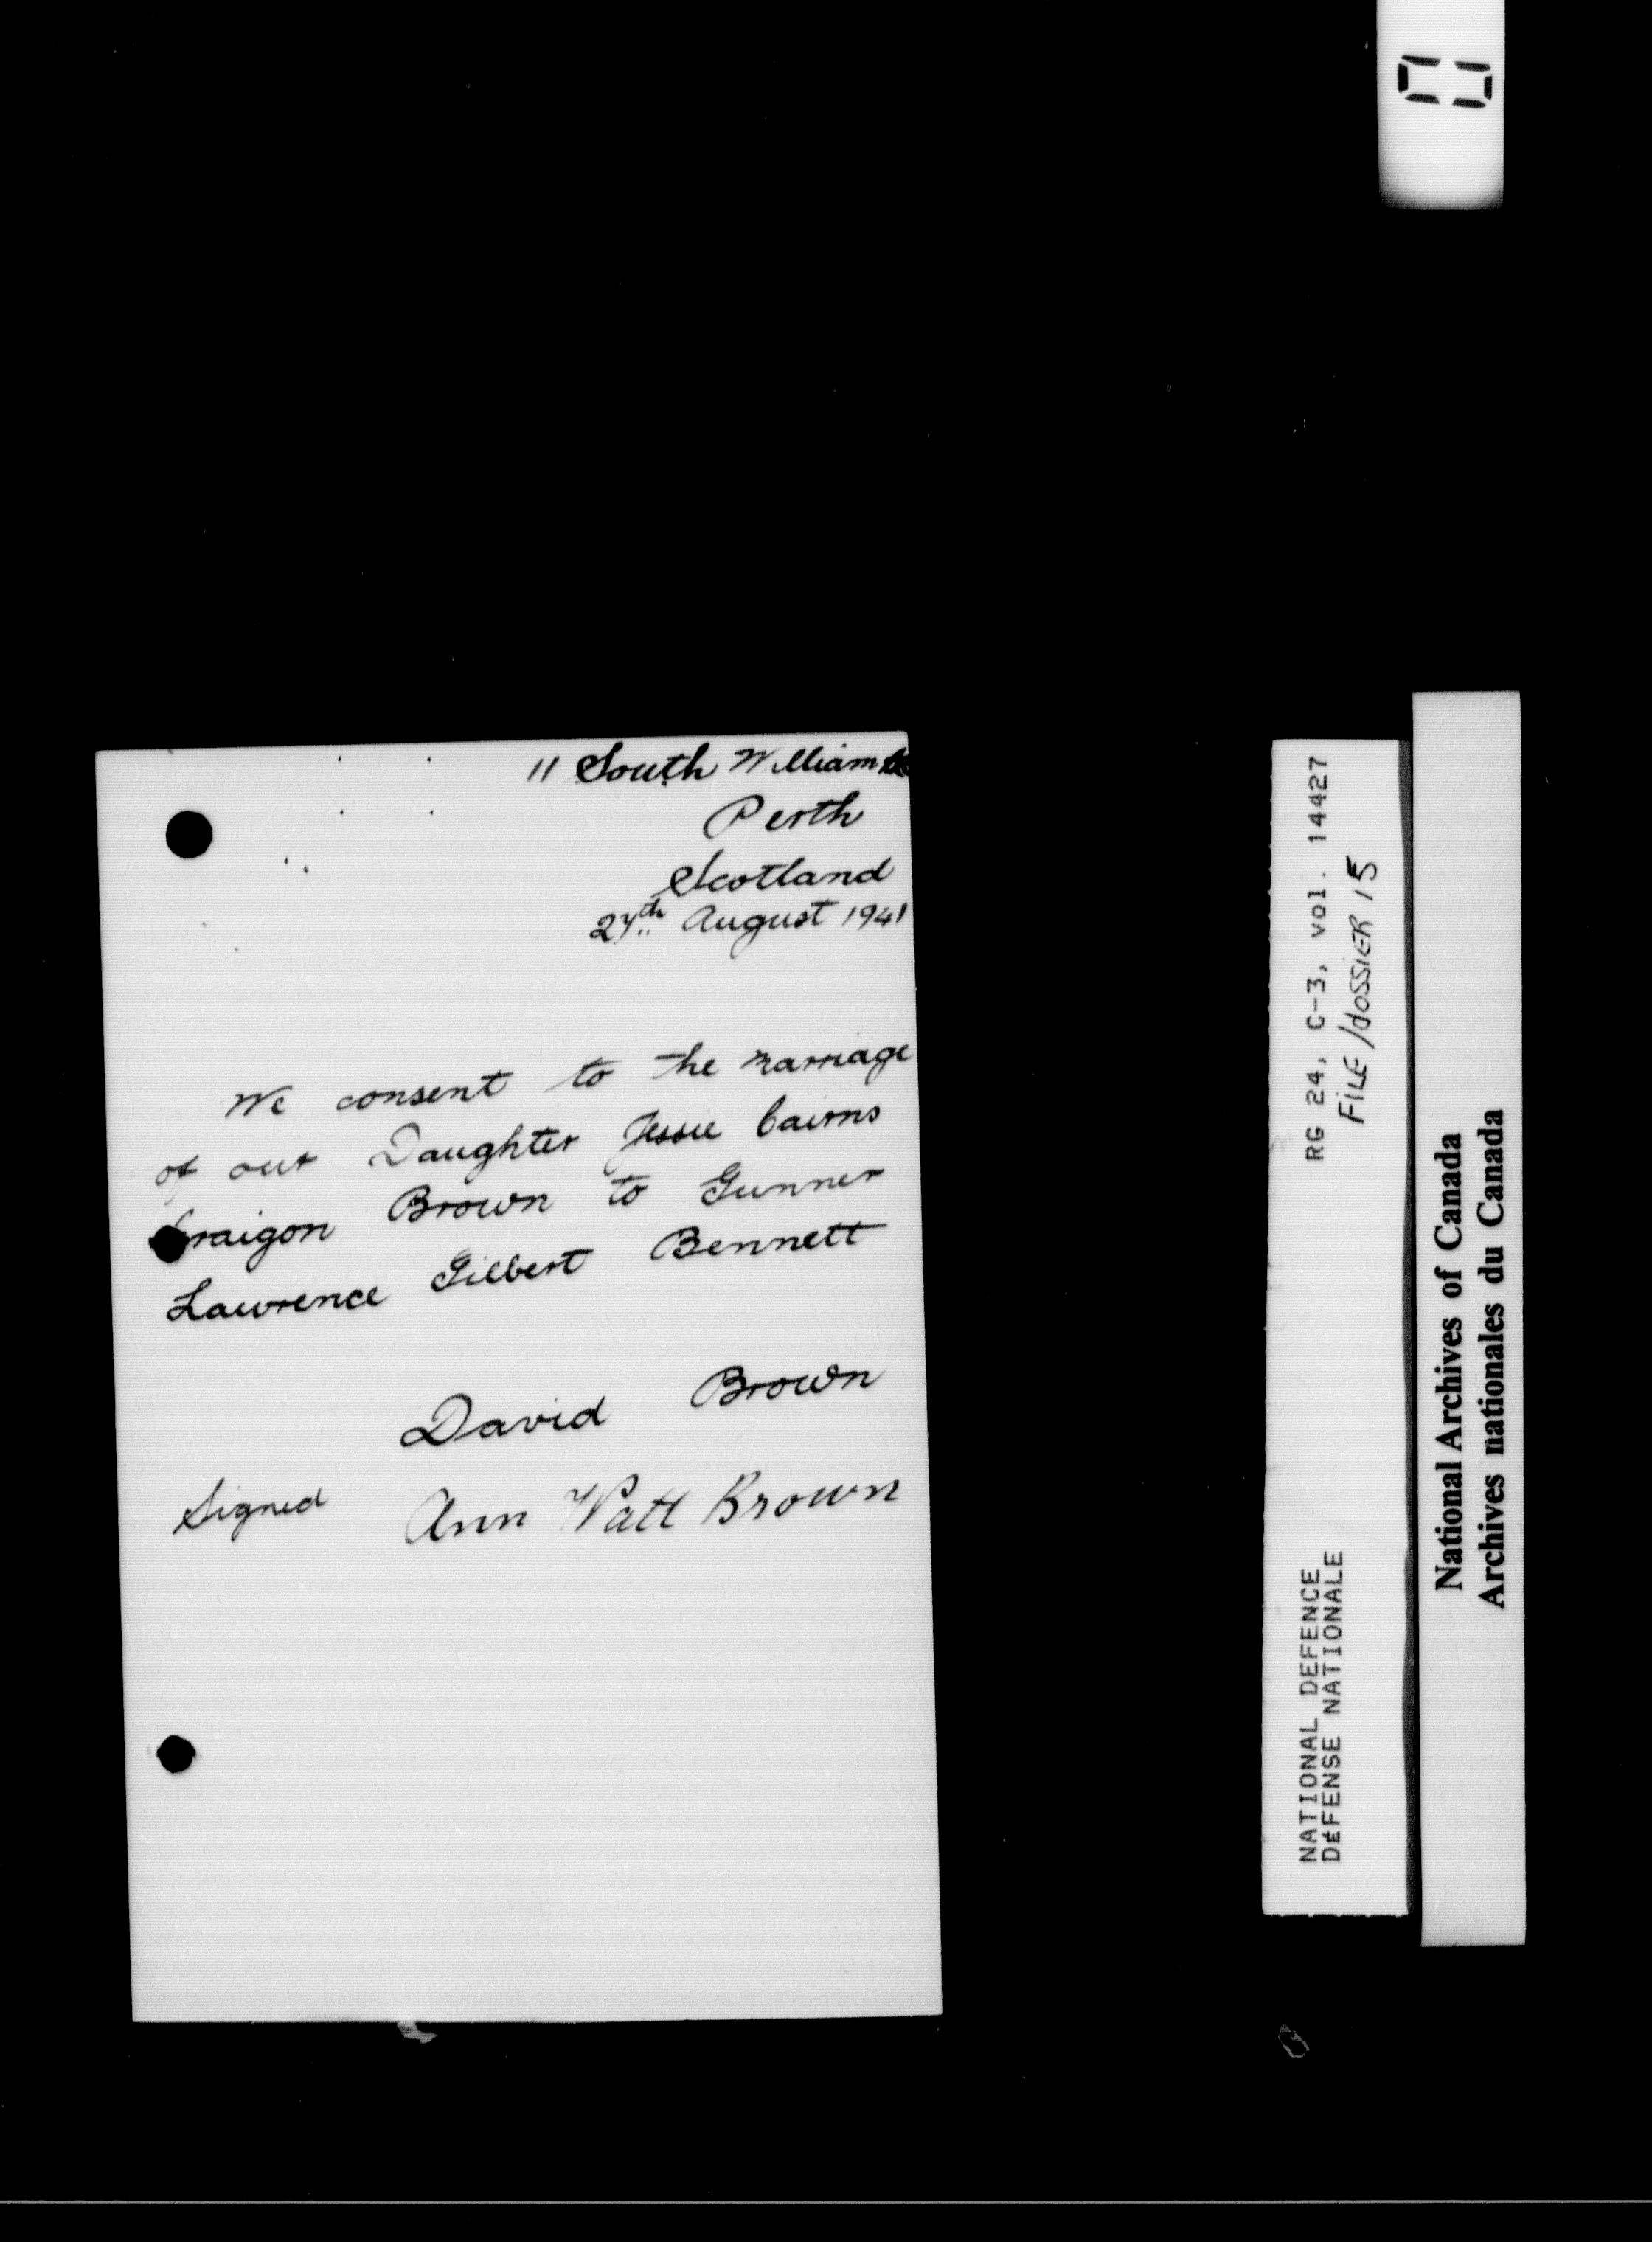 11 South William St
Perth
Scotland
27th August 1941
We consent to the marriage
of our Daughter Jessie Cairns
Brown to Gunner
Lawrence Gilbert Bennett
David Brown
Signed Ann Watt Brown
RG 24, C-3, vol. 14427
FILE/dOSSIER 15
NATIONAL DEFENCE
DéFENSE NATIONALE
National Archives of Canada
Archives nationales du Canada